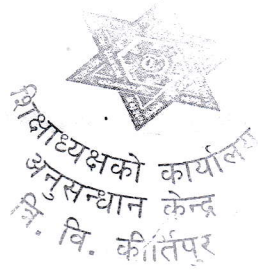 शिक्षाध्यक्षको कार्यालय
अनुसन्धान केन्द्र
त्रि. वि. कीर्तिपुर